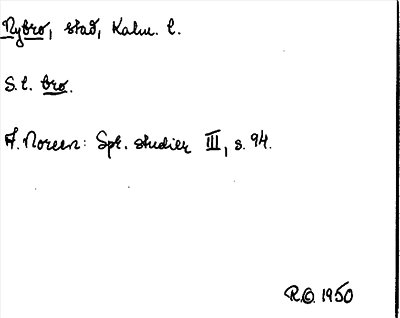 Nybro, stad, Kalm. l.
S. l. bro.
A. Noreen: Spr. studier III, s. 94.
R.Ö. 1950